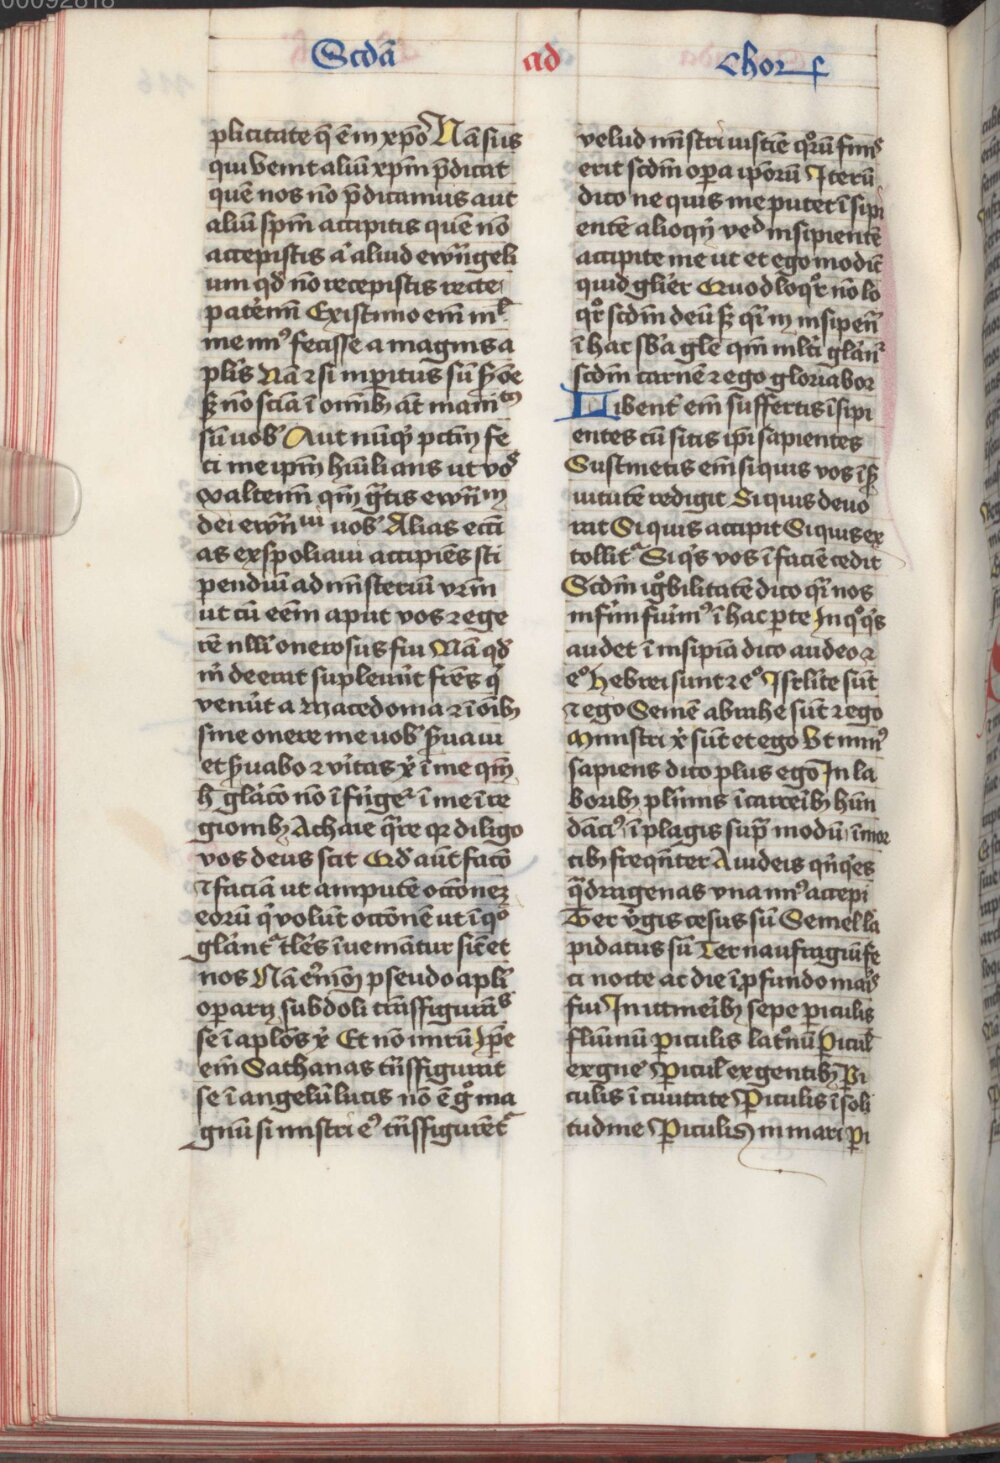 00092818
Scdā ad Chor
plicitate q̄ ē in xp̄o Nā si is
qui venit aliū xpm̄ p̄dicat
quē nos nō p̄dicamus aut
aliū sp̄m accipitis quē nō
accepistis aͭ aliud ewāngeli
um qd̄ nō recepistis recte
pateīni Existimo em̄ nl̄
me min⁹ fecisse a magnis a
plīs Nā ⁊ si inp̄itus sū s̄mōe
sꝫ nō sciā ī omībꝫ aūt manitꝰ
sū uob̄ Aut nūqͥd pctm̄ fe
ci me ip̄m hūilians ut vos
exaltemī qm̄ gͣtis ewāniū
dei ewāniui uob̄ Alias ecc̄i
as exspoliaui accipiēs sti
pendiū ad ministeriū vr̄m
ut cū eēm aput vos ⁊ ege
rē nlli onerosus fui Nā qd̄
mͥ deerat supleuīt fr̄es qͥ
venīt a Macedonia ⁊ ī oībꝫ
sine onere me uob̄ s̄uaui
et s̄uabo ⁊ vītas xͥ ī me qm̄
h̄ glāco nō īfnḡeͬ ī me ī re
gionibꝫ Achaie qͣre qꝛ diligo
vos deus scit Qd̄ aūt facō
⁊ faciā ut amputē occōneꝫ
eorū qͥ volūt occōnē ut ī qͦ
glānͭͬ tlēs īueniātur sic̄ et
nos Nā eͥmōi pseudo aplī
opariꝫ subdoli trāsfigurāͭs
se ī aplōs xͥ Et nō mirū ip̄e
em̄ Sathanas trāsfigurat
se ī angelū lucis nō ē gͦ ma
gnū si ministri eͥ⁹ trāsfigurētͬ
velud ministri iusticie qͦrū finis
erit scdm̄ oꝑa ip̄orū Iterū
dico ne quis me putet īsipi
entē alioqͥn veđ insipientē
accipite me ut et ego modic̄
quid gliēr Quod loqͦr nō lo
qͦr scdm̄ deū sꝫ qͣi in insipiēn̄
ī hac sb̄a glē qm̄ ml̄ti glānͬ
scdm̄ carnē ⁊ ego gloriabor
Libenͭ em̄ suffertis īsipi
entes cū sitis ip̄i sapientes
Sustinetis em̄ si quis vos ī s̄
uitutē redigit Si quis deuo
rat Si quis accipit Si quis ex
tollitͬ Si qͥs vos ī faciē cedit
Scdm̄ igͦbilitatē dico qͣi nos
infirmi fuīm⁹ ī hac ꝑte In qͦ qͥs
audet ī insipiā dico audeo ⁊
eͦ hebrei sunt ⁊ eͦ Isrlīte sūt
⁊ ego Semē abrahe sūt ⁊ ego
Ministri xͥ sūt et ego Vt min⁹
sapiens dico plus ego In la
boribꝫ plimīs ī carcēibꝫ hūn
dāci⁹ ī plagis supͣ modū ī mor
tibꝫ freqn̄ter A iudeis qn̄qͥes
qͣdragenas vna min⁹ accepi
Ter vͥgis cesus sū Semel la
pidatus sū Ter naufragiū fe
ci nocte ac die ī ꝓfundo maris
fui In itineībꝫ sepe ꝑiculis
flumīnū ꝑiculis latͦnū Picul̄
ex gnē Picul̄ ex gentibꝫ Pi
culis ī ciuitate Piculis ī soli
tudine Piculis in mari pi